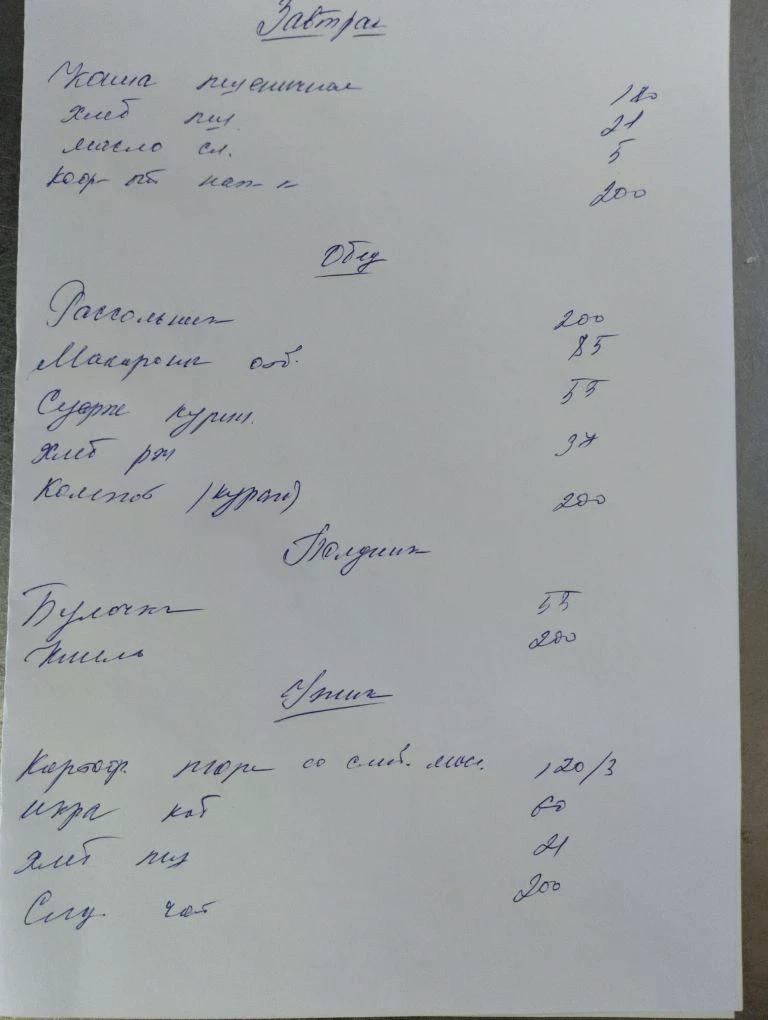 Завтрак
Каша пшеничная 180
хлеб пш. 21
масло сл. 5
Коф- 200
Обед
Рассольник 200
Макароны отв. 85
Суфле курин. 55
хлеб рж 37
Компот (курага) 200
Полдник
Булочка 55
Кисель 200
Ужин
Картоф. пюре со слив. мас. 120/3
икра каб 60
хлеб пш 21
Слад. чай 200